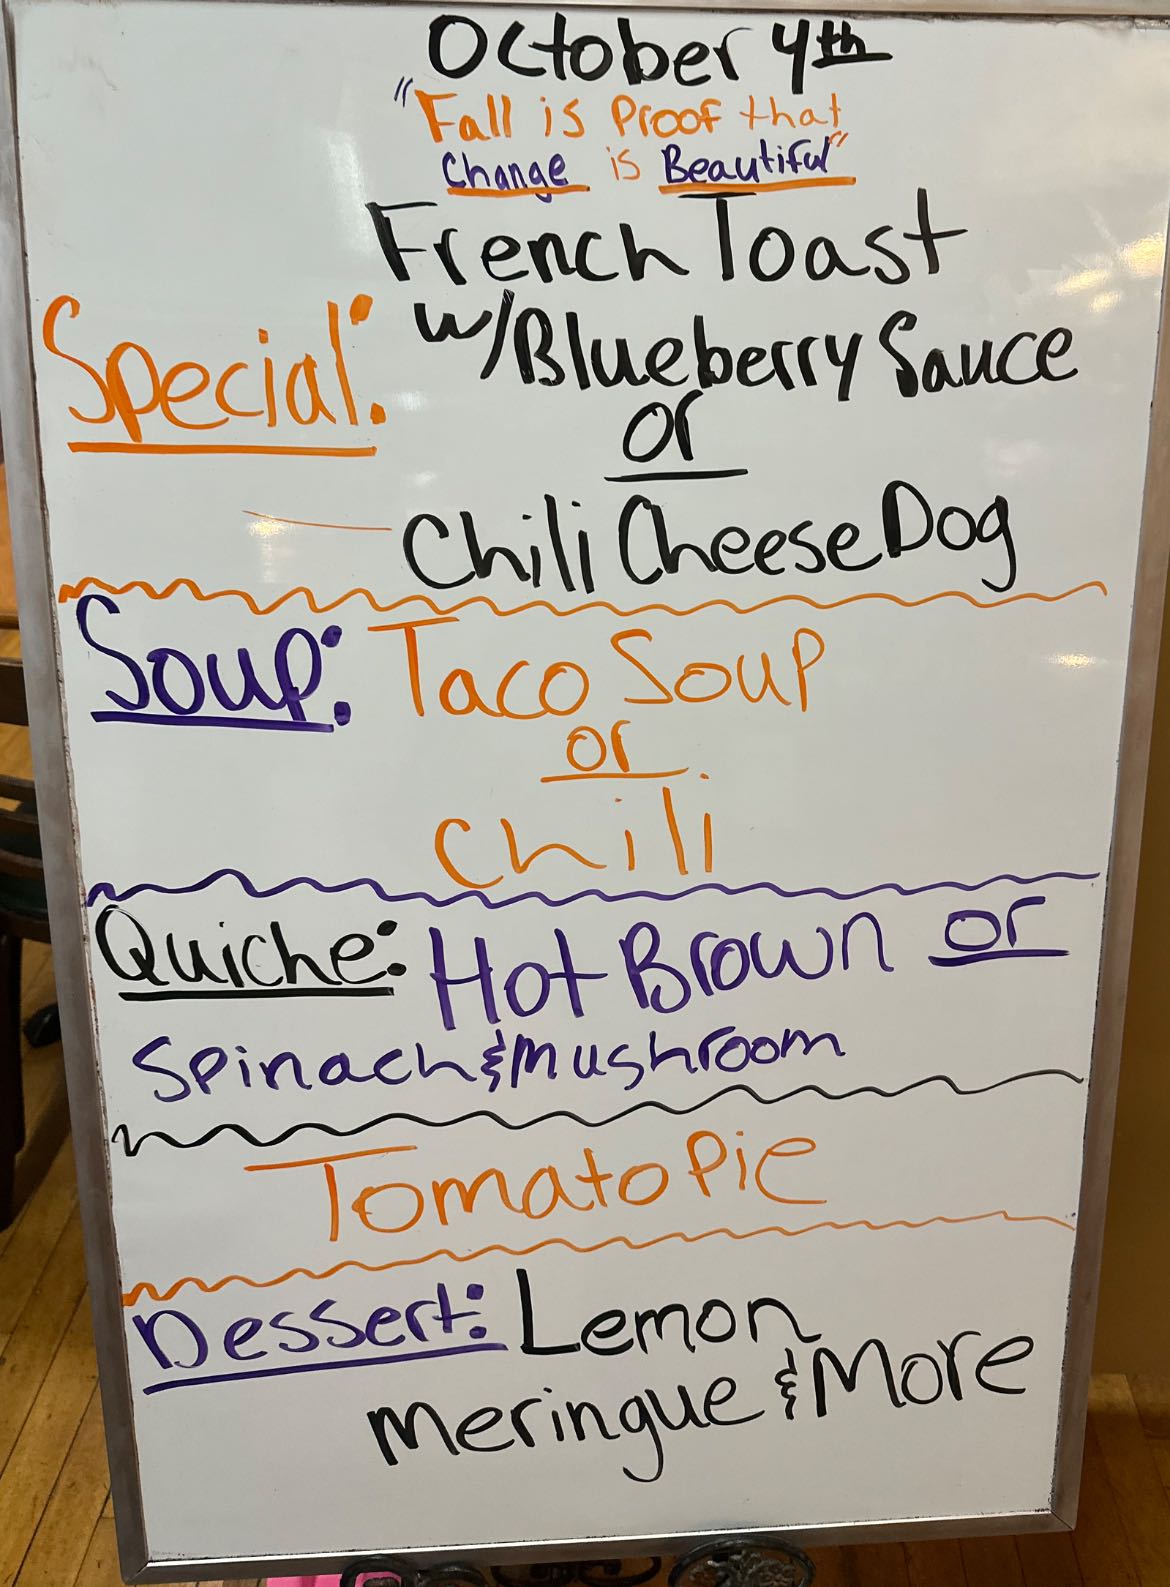 October 4th
"Fall is Proof that
Change is Beautiful"
French Toast
Special: w/Blueberry Sauce
or
Chili Cheese Dog
Soup: Taco Soup
or
Chili
Quiche: Hot Brown or
Spinach & Mushroom
Tomato Pie
Dessert: Lemon
Meringue & More